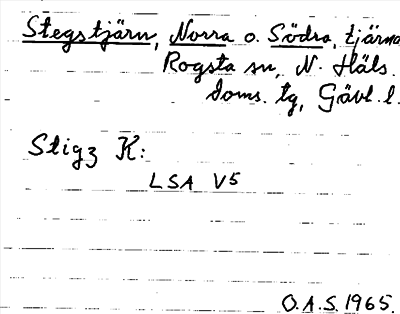 Stegstjärn, Norra o. Södra, tjärna
Rogsta sn, N. Häls.
doms. tg, Gävl. l.
Stigz K:
LSA V5
O.A.S. 1965.